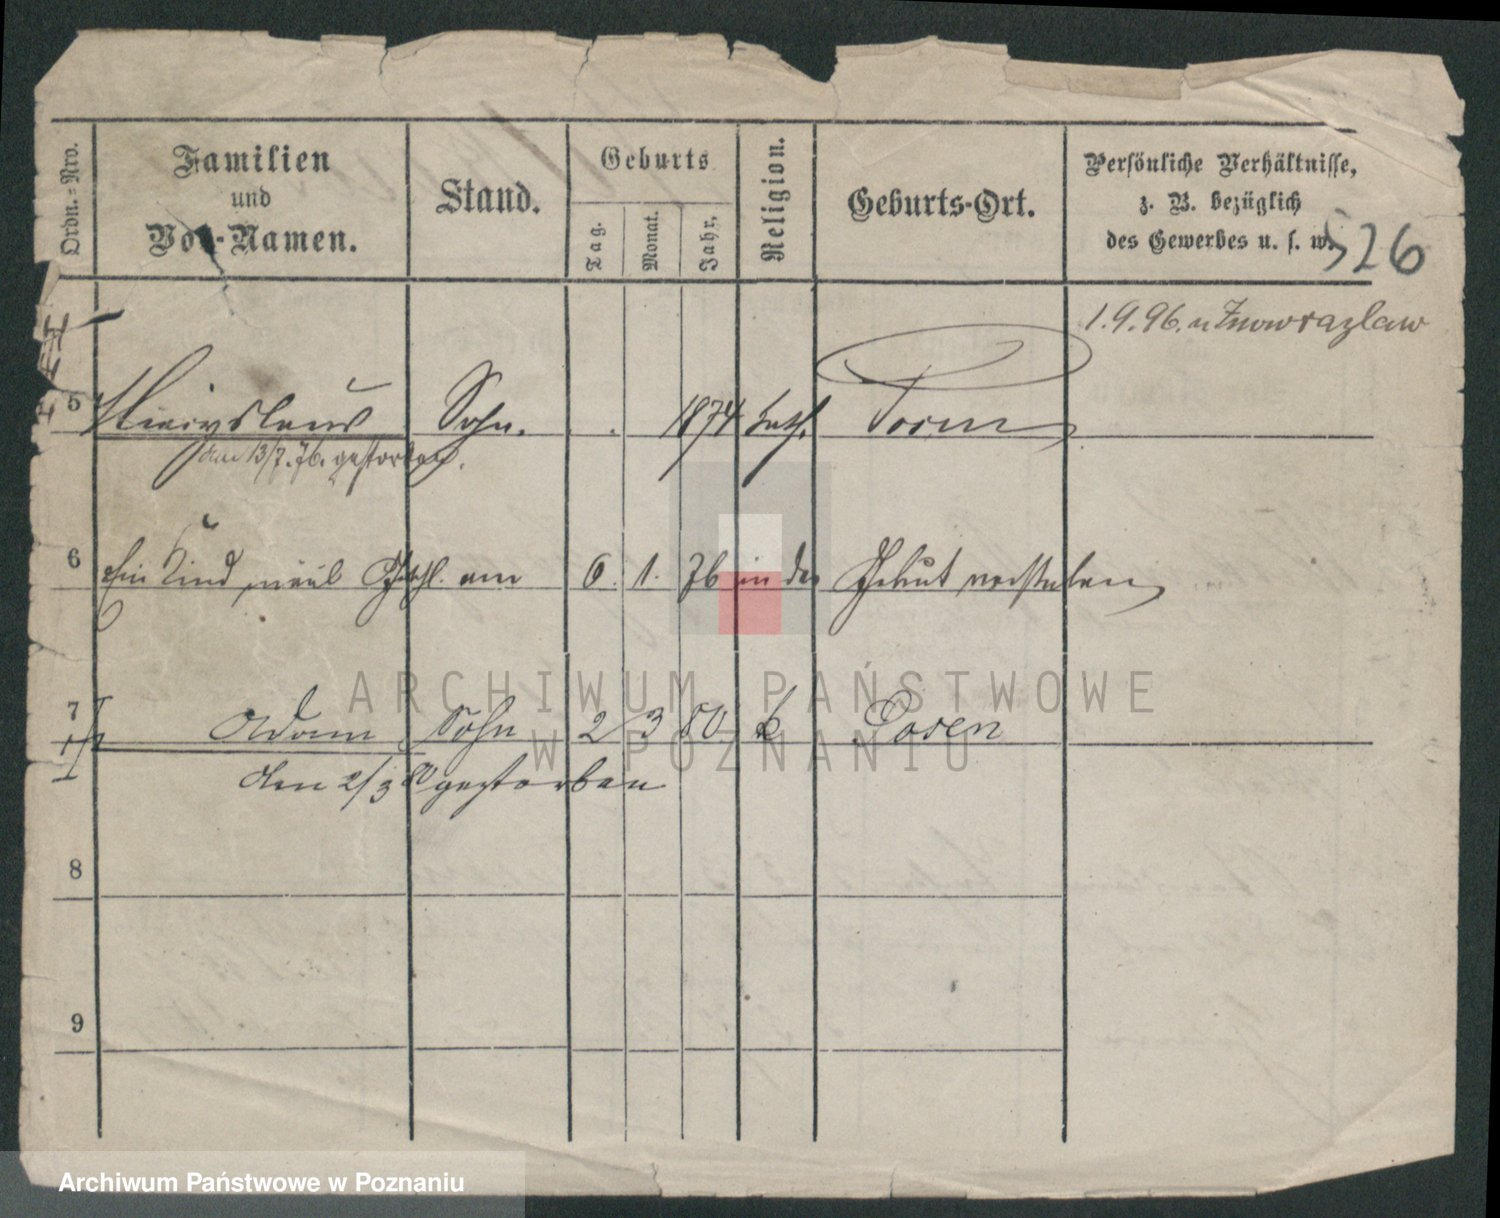 Ordn.-Nro.
Familien
und
Vor-Namen.
Stand.
Geburts
Tag.
Monat.
Jahr.
Religion.
Geburts-Ort.
Persönliche Verhältnisse,
z. B. bezüglich
des Gewerbes u. s. w.
526
1.9.96. n Inowrazlaw
5 Miecyslaus Sohn. 1874 kath. Posen
am 13/7. 76. gestorben.
6 Ein Kind, männl. Geschl. am 6. 1. 76 in der Geburt verstorben
7 Adam Sohn 2 3 80 k Posen
den 2/3 80 gestorben
8
9
ARCHIWUM PAŃSTWOWE
W POZNANIU
Archiwum Państwowe w Poznaniu